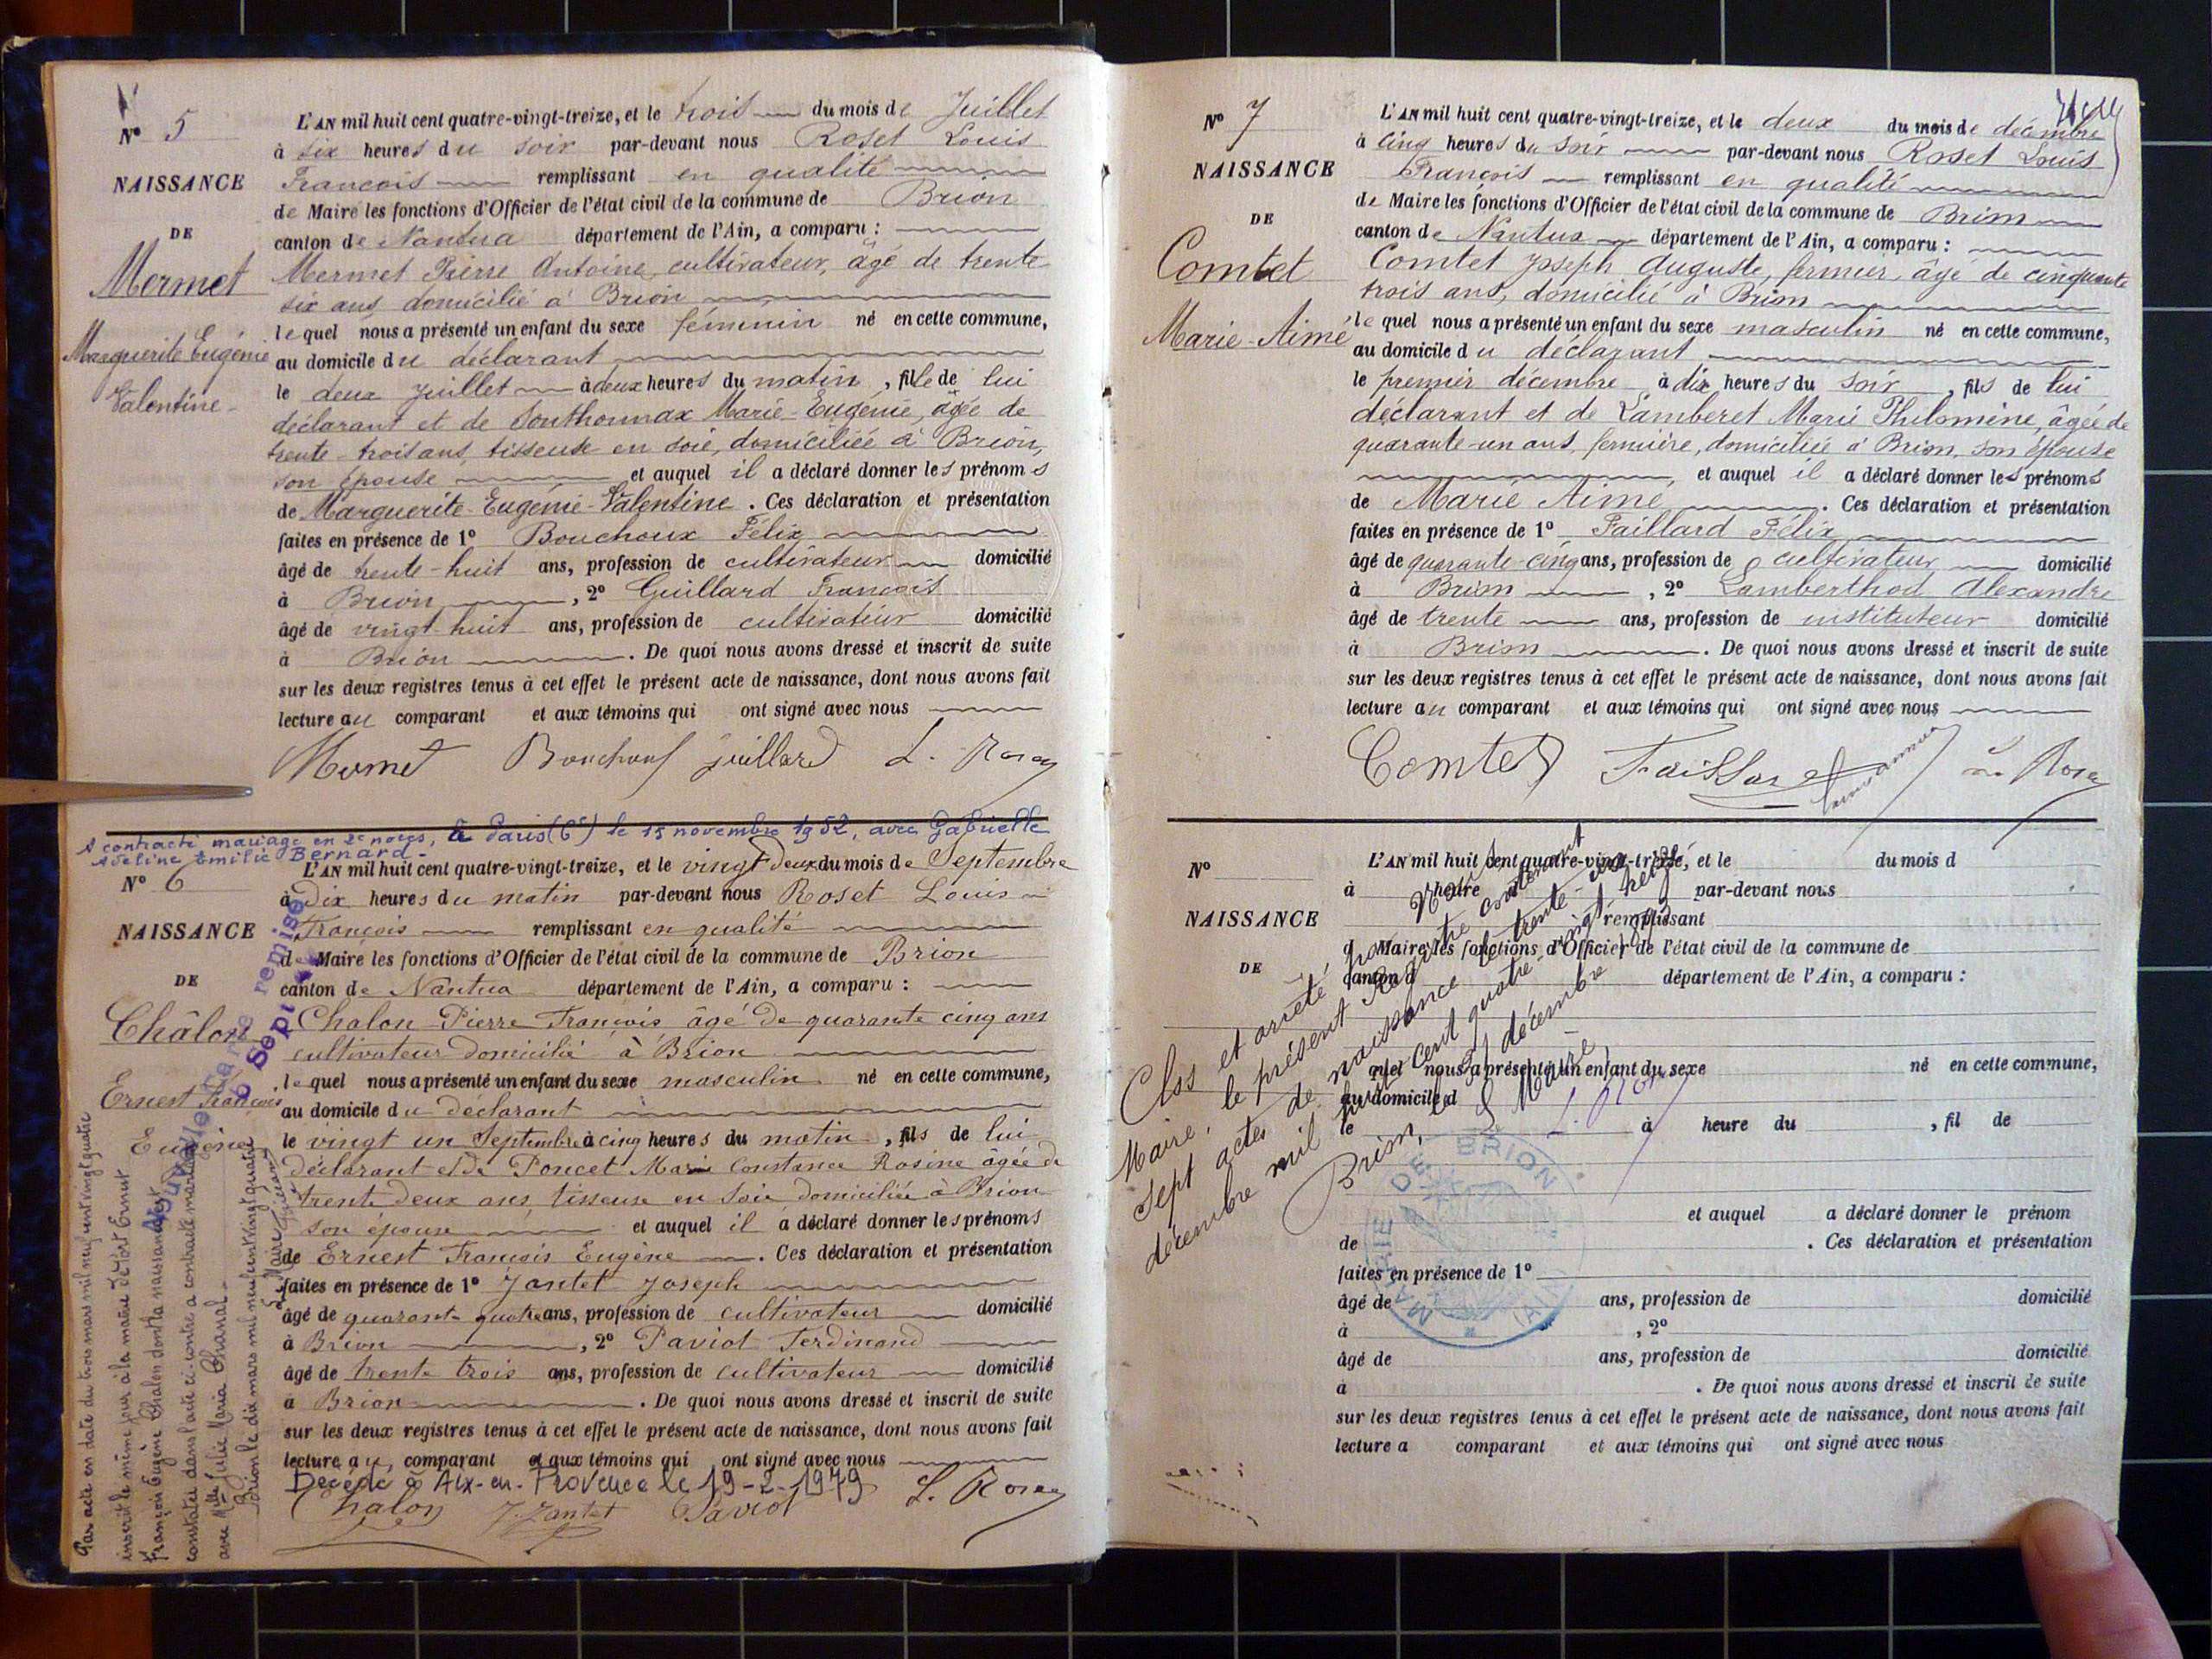 N° 5
NAISSANCE
DE
Mermet
Marguerite Eugénie
Valentine
L'AN mil huit cent quatre-vingt-treize, et le trois du mois de Juillet
à six heures du soir par-devant nous Roset Louis
François remplissant en qualité
de Maire les fonctions d'Officier de l'état civil de la commune de Brion
canton de Nantua département de l'Ain, a comparu :
Mermet Pierre Antoine, cultivateur, âgé de trente
six ans domicilié à Brion
lequel nous a présenté un enfant du sexe féminin né en cette commune,
au domicile du déclarant
le deux Juillet à deux heures du matin, fille de lui
déclarant et de Sonthonnax Marie-Eugénie, âgée de
trente-trois ans, tisseuse en soie, domiciliée à Brion,
son épouse et auquel il a déclaré donner les prénoms
de Marguerite-Eugénie-Valentine. Ces déclaration et présentation
faites en présence de 1° Bouchoux Félix
âgé de trente-huit ans, profession de cultivateur domicilié
à Brion, 2° Guillard François
âgé de vingt-huit ans, profession de cultivateur domicilié
à Brion. De quoi nous avons dressé et inscrit de suite
sur les deux registres tenus à cet effet le présent acte de naissance, dont nous avons fait
lecture au comparant et aux témoins qui ont signé avec nous
Mermet Bouchoux Guillard L. Roset
A contracté mariage en 2e noces, à Paris (6e) le 15 novembre 1952, avec Gabrielle
Adeline Emilie Bernard.-
N° 6
NAISSANCE
DE
Châlon
Ernest François
Eugène
L'AN mil huit cent quatre-vingt-treize, et le vingt deux du mois de Septembre
à Dix heures du matin par-devant nous Roset Louis
François remplissant en qualité
de Maire les fonctions d'Officier de l'état civil de la commune de Brion
canton de Nantua département de l'Ain, a comparu :
Chalon Pierre François âgé de quarante cinq ans
cultivateur domicilié à Brion
lequel nous a présenté un enfant du sexe masculin né en cette commune,
au domicile du déclarant
le vingt un Septembre à cinq heures du matin, fils de lui
déclarant et de Poncet Marie Constance Rosine âgée de
trente deux ans, tisseuse en soie domiciliée à Brion
son épouse et auquel il a déclaré donner les prénoms
de Ernest François Eugène. Ces déclaration et présentation
faites en présence de 1° Jantet Joseph
âgé de quarante quatre ans, profession de cultivateur domicilié
à Brion, 2° Paviot Ferdinand
âgé de trente trois ans, profession de cultivateur domicilié
à Brion. De quoi nous avons dressé et inscrit de suite
sur les deux registres tenus à cet effet le présent acte de naissance, dont nous avons fait
lecture au comparant et aux témoins qui ont signé avec nous
Décédé à Aix-en-Provence le 19-2-1979
Chalon J. Jantet Paviot L. Roset
Par acte en date du trois mars mil neuf cent vingt quatre
inscrit le même jour à la mairie de Ernest
François Eugène Chalon dont la naissance est
constatée dans l'acte ci-contre a contracté mariage
avec Mlle Julie Maria Chanal.
Brion le dix mars mil neuf cent vingt quatre
Le Maire
remise
Sept
N° 7
NAISSANCE
DE
Comtet
Marie-Aimé
L'AN mil huit cent quatre-vingt-treize, et le deux du mois de décembre
à cinq heures du soir par-devant nous Roset Louis
François remplissant en qualité
de Maire les fonctions d'Officier de l'état civil de la commune de Brion
canton de Nantua département de l'Ain, a comparu :
Comtet Joseph Auguste, fermier, âgé de cinquante
trois ans, domicilié à Brion
lequel nous a présenté un enfant du sexe masculin né en cette commune,
au domicile du déclarant
le premier décembre à dix heures du soir, fils de lui
déclarant et de Lamberet Marie Philomène, âgée de
quarante-un ans, fermière, domiciliée à Brion, son épouse
, et auquel il a déclaré donner les prénoms
de Marie Aimé. Ces déclaration et présentation
faites en présence de 1° Paillard Félix
âgé de quarante-cinq ans, profession de cultivateur domicilié
à Brion, 2° Lamberthod Alexandre
âgé de trente ans, profession de instituteur domicilié
à Brion. De quoi nous avons dressé et inscrit de suite
sur les deux registres tenus à cet effet le présent acte de naissance, dont nous avons fait
lecture au comparant et aux témoins qui ont signé avec nous
Comtet L. Roset
N°
NAISSANCE
DE
L'AN mil huit cent quatre-vingt-treize, et le du mois d
à heure par-devant nous
remplissant
d Maire les fonctions d'Officier de l'état civil de la commune de
canton d département de l'Ain, a comparu :
quel nous a présenté un enfant du sexe né en cette commune,
au domicile d
le à heure du , fil de
et auquel a déclaré donner le prénom
de . Ces déclaration et présentation
faites en présence de 1°
âgé de ans, profession de domicilié
à , 2°
âgé de ans, profession de domicilié
à . De quoi nous avons dressé et inscrit de suite
sur les deux registres tenus à cet effet le présent acte de naissance, dont nous avons fait
lecture a comparant et aux témoins qui ont signé avec nous
Clos et arrêté, par Nous,
Maire, le présent Registre contenant
sept actes de naissance le trente-un
décembre mil huit cent quatre-vingt treize
Brion, le 31 décembre 1893
Le Maire,
L. Roset
MAIRIE DE BRION (AIN)